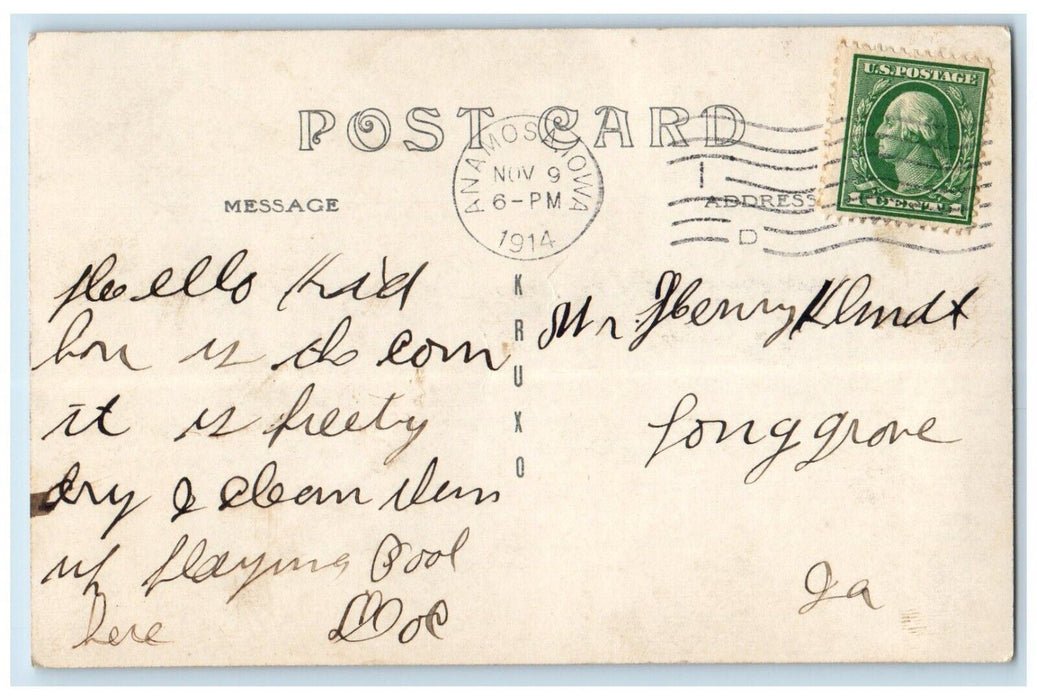 U.S. POSTAGE
POST CARD
ANAMOSA, IOWA
NOV 9
6-PM
1914
D
MESSAGE
ADDRESS
KRUXO
Hello Kid
how is the corn
it is preety
dry & clean
up playing Pool
here Doc
Mr. Henry Klindt
Long grove
Ia